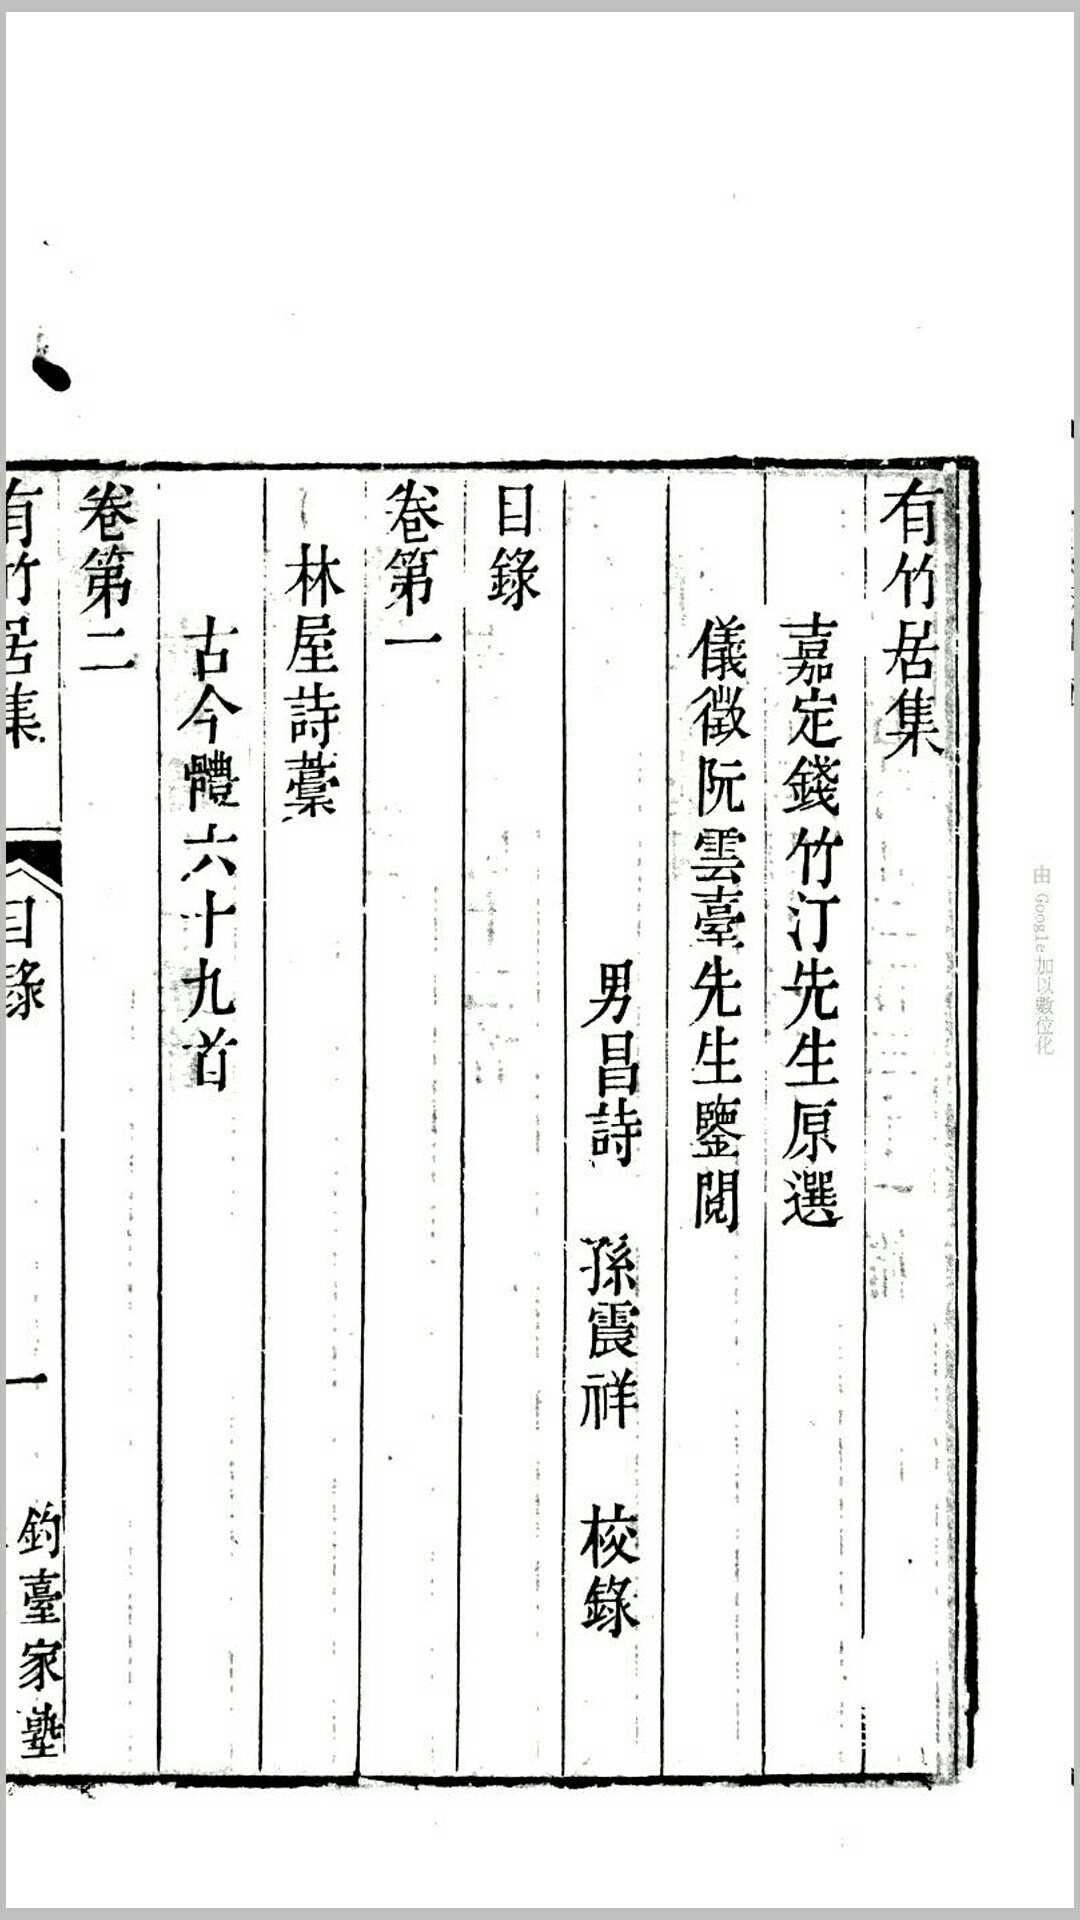 有竹居集
嘉定錢竹汀先生原選
儀徵阮雲臺先生鑒閱
男昌詩　孫震祥　校錄
目錄
卷第一
林屋詩藁
古今體六十九首
卷第二
有竹居集　目錄　一　鈞臺家塾
由 Google 加以數位化